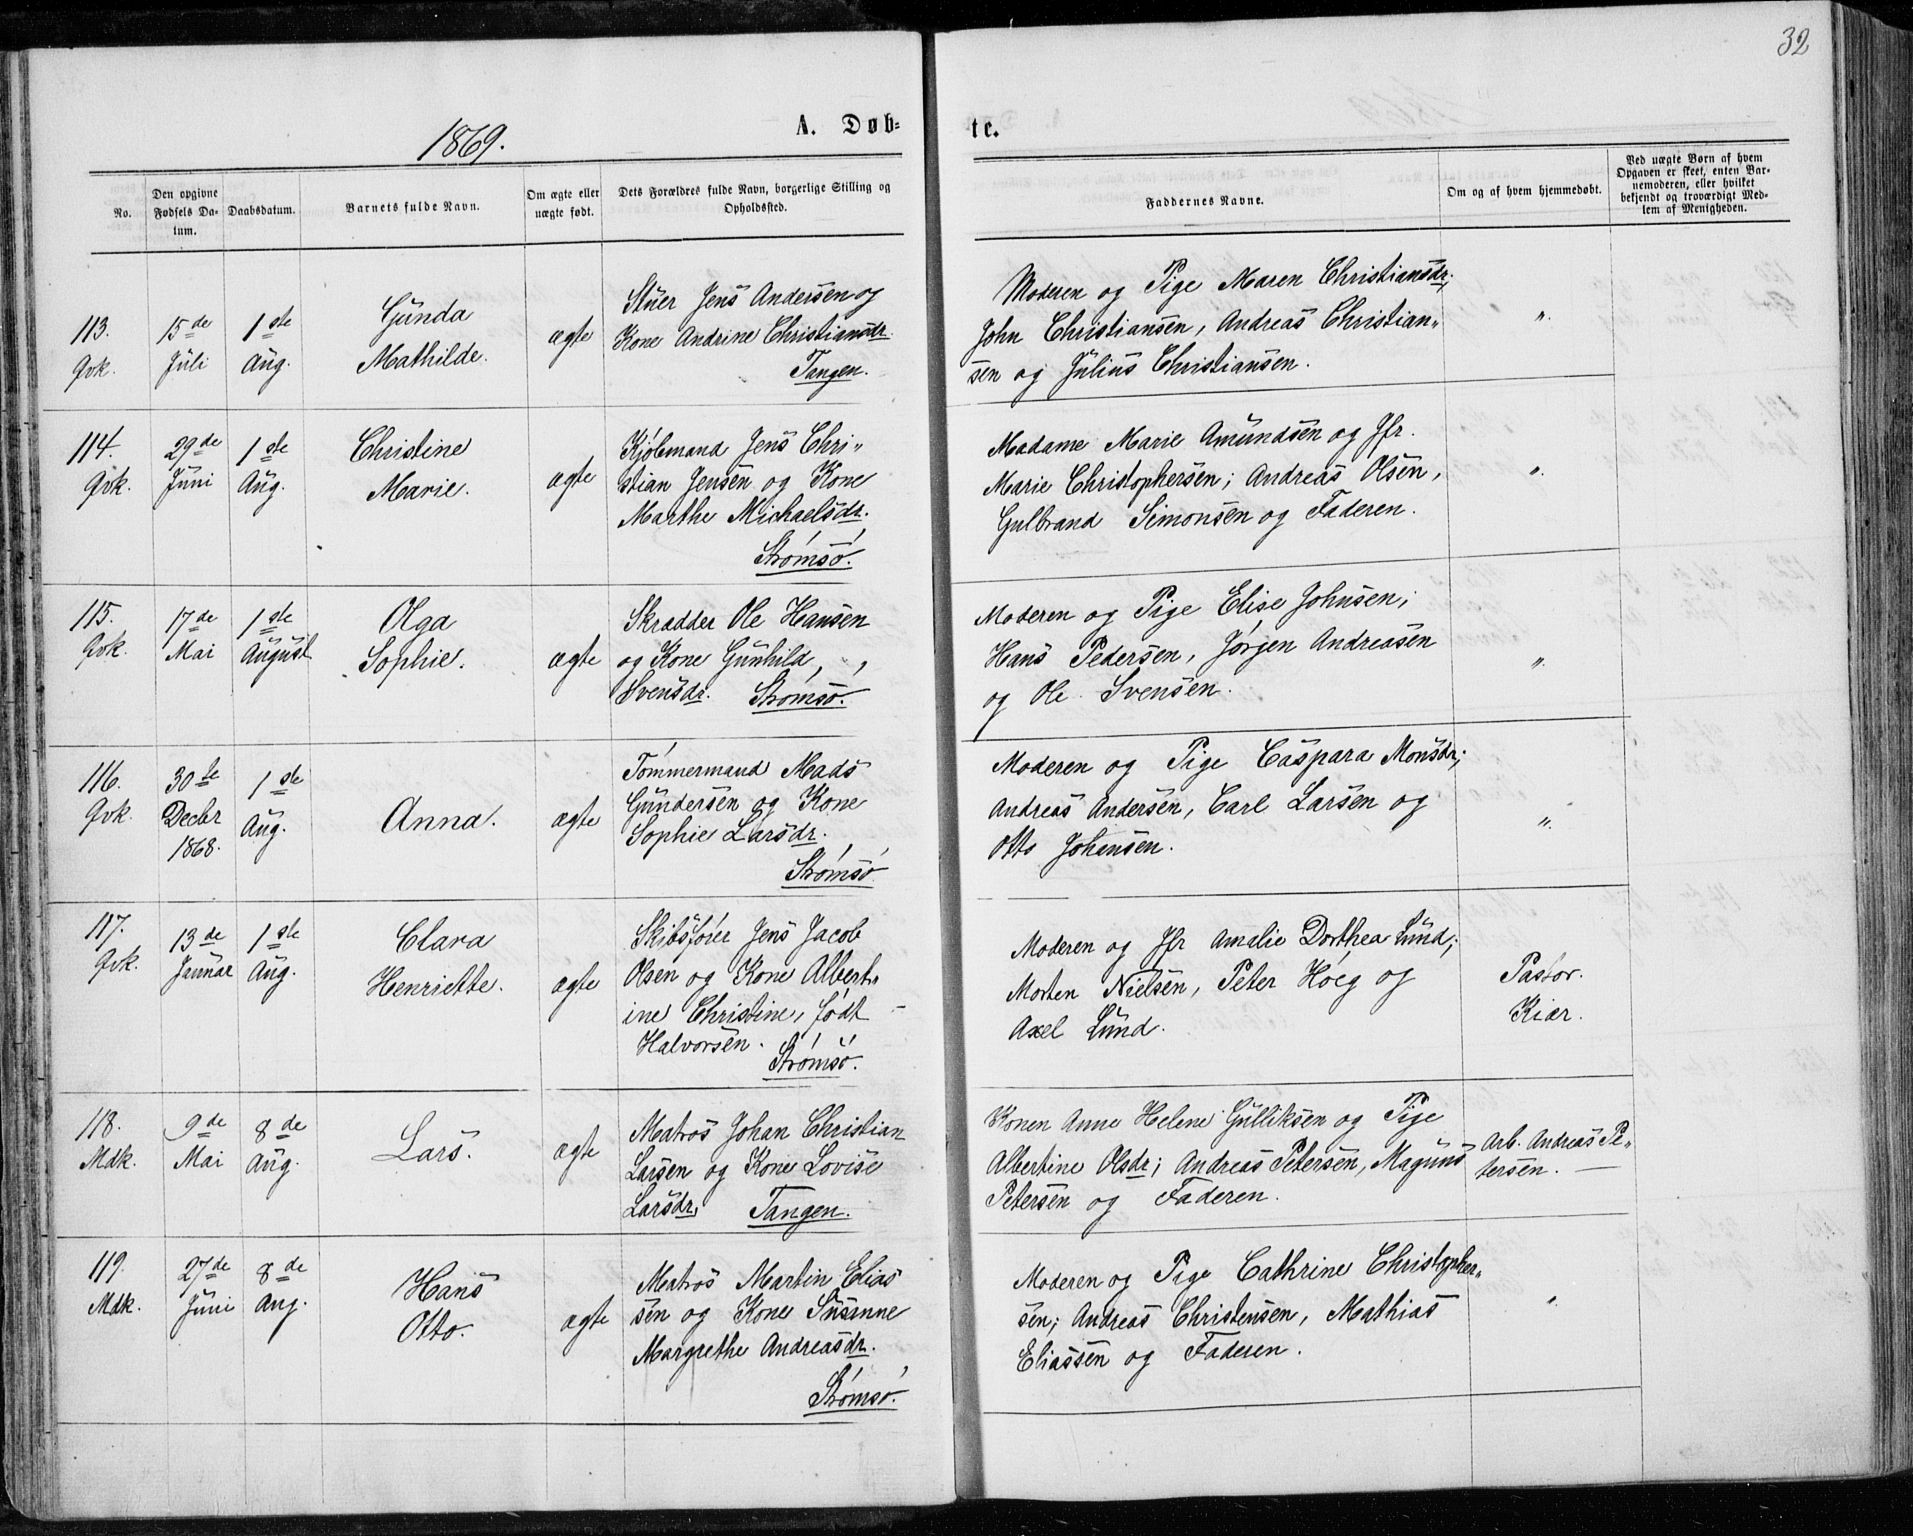 32
1869.
A. Døb=
te.
No.
Den opgivne Fødsels Da-tum.
Daabsdatum.
Barnets fulde Navn.
Om ægte eller uægte født.
Dets Forældres fulde Navn, borgerlige Stilling og Opholdssted.
Faddernes Navne.
Om og af hvem hjemmedøbt.
Ved uægte Børn af hvem Opgaven er skeet, enten Bar-nemoderen, eller hvilket bekjendt og troværdigt Med-lem af Menigheden.
113.
Qvk.
15de
Juli
1ste
Aug.
Gunda
Mathilde.
ægte
Stuer Jens Andersen og
Kone Andrine Christiansdr.
Tangen.
Moderen og Pige Maren Christiansdr;
John Christiansen, Andreas Christian„
sen og Julius Christiansen.
„.
114.
Qvk.
29de
Juni
1ste
Aug.
Christine
Marie.
ægte
Kjøbmand Jens Chri„
stian Jensen og Kone
Marthe Michaelsdr.
Strømsø.
Madame Marie Amundsen og Jfr.
Marie Christophersen; Andreas Olsen,
Gulbrand Simonsen og Faderen.
„.
115.
Qvk.
17de
Mai
1ste
August
Olga
Sophie.
ægte
Skrædder Ole Hansen
og Kone Gunhild
Svensdr. Strømsø.
Moderen og Pige Elise Johnsen;
Hans Pedersen, Jørgen Andreasen
og Ole Svensen.
„.
116.
Qvk.
30te
Decbr
1868.
1ste
Aug.
Anna.
ægte
Tømmermand Mads
Gundersen og Kone
Sophie Larsdr.
Strømsø
Moderen og Pige Caspara Monsdr;
Andreas Andersen, Carl Larsen og
Otto Johansen.
„.
117.
Qvk.
13de
Januar
1ste
Aug.
Clara
Henriette.
ægte
Skibsfører Jens Jacob
Olsen og Kone Albert„
ine Christine, født
Halvorsen.
Strømsø.
Moderen og Jfr Amalie Dorthea Lund;
Morten Nielsen, Peter Høeg og
Axel Lund.
Pastor.
Kiær.
118.
Mdk.
9de
Mai
8de
Aug.
Lars.
ægte
Matros Johan Christian
Larsen og Kone Lovise
Larsdr, Tangen.
Konen Anne Helene Gulliksen og Pige
Albertine Olsdr; Andreas Petersen, Magnus
Petersen og Faderen.
Arb. Andreas Pe„
tersen. —
119.
Mdk.
27de
Juni
8de
Aug.
Hans
Otto.
ægte
Matros Martin Elias
sen og Kone Susanne
Margrethe Andreasdr.
Strømsø.
Moderen og Pige Cathrine Christopher„
sen; Andreas Christensen, Mathias
Eliassen og Faderen.
„